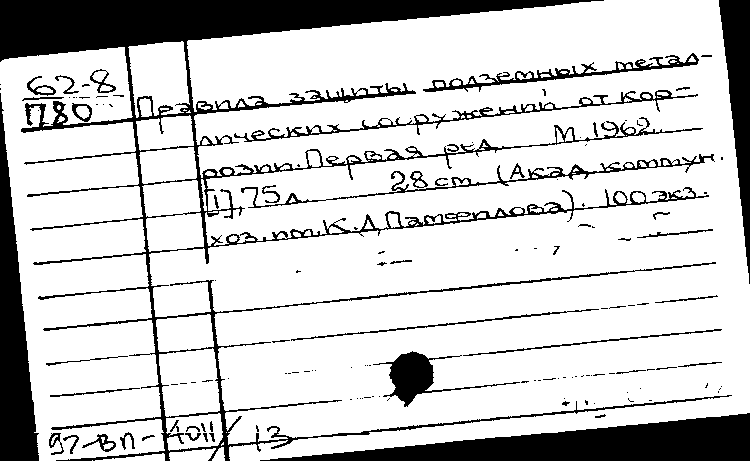 62-8
П80
Правила защиты подземных метал-
лических сооружений от кор-
розии. Первая ред. М, 1962.
[1], 75 л. 28 см. (Акад. коммун.
хоз. им. К. Д. Памфилова). 100 экз.
97-ВП-4011/13